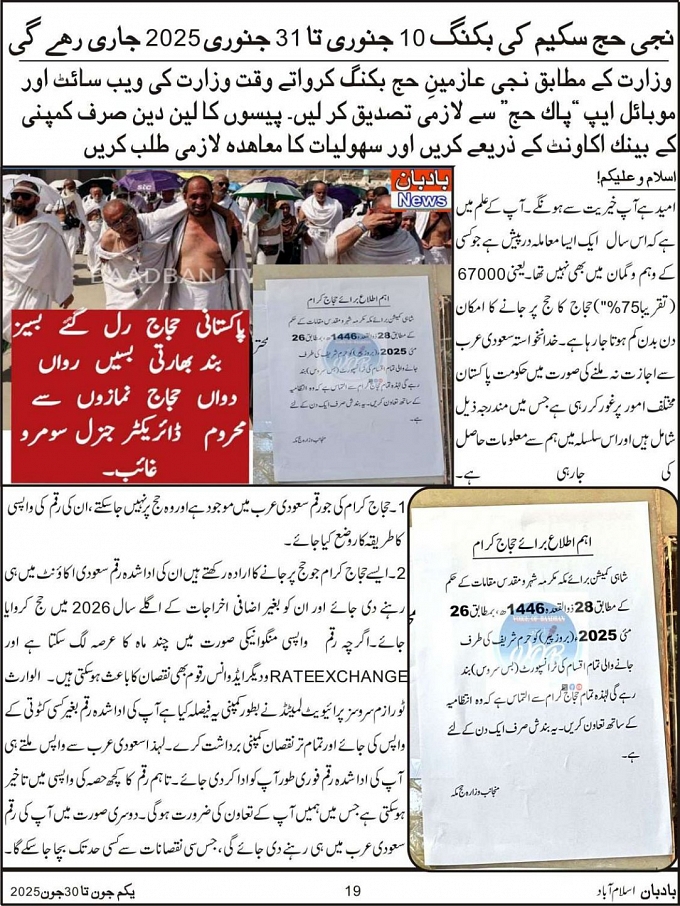 نجی حج سکیم کی بکنگ 10 جنوری تا 31 جنوری 2025 جاری رھے گی
وزارت کے مطابق نجی عازمینِ حج بکنگ کرواتے وقت وزارت کی ویب سائٹ اور
موبائل ایپ “پاك حج” سے لازمی تصدیق کر لیں۔ پیسوں کا لین دین صرف کمپنی
کے بینك اکاونٹ کے ذریعے کریں اور سھولیات کا معاھدہ لازمی طلب کریں
اسلام و علیکم!
امید ہے آپ خیریت سے ہونگے۔ آپ کے علم میں
ہے کہ اس سال ایک ایسا معاملہ درپیش ہے جو کسی
کے وہم و گمان میں بھی نہیں تھا۔ یعنی 67000
(تقریبا 75%") حجاج کا حج پر جانے کا امکان
دن بدن کم ہوتا جا رہا ہے۔ خدانخواستہ سعودی عرب
سے اجازت نہ ملنے کی صورت میں حکومت پاکستان
مختلف امور پر غور کر رہی ہے جس میں مندرجہ ذیل
شامل ہیں اور اس سلسلہ میں ہم سے معلومات حاصل
کی جا رہی ہے۔
بادبان
News
stc
BAADBAN TV
پاکستانی حجاج رل گئے بسیز
بند بھارتی بسیں رواں
دواں حجاج نمازوں سے
محروم ڈائریکٹر جنرل سومرو
غائب۔
اہم اطلاع برائے حجاج کرام
شاہی کمیشن برائے مکہ مکرمہ شہر و مقدس مقامات کے حکم
کے مطابق 28 ذوالقعدہ 1446ھ، بمطابق 26
مئی 2025، (بروز پیر) کو حرم شریف کی طرف
جانے والی تمام اقسام کی ٹرانسپورٹ (بس سروس) بند
رہے گی لہٰذہ تمام حجاج کرام سے التماس ہے کہ وہ انتظامیہ
کے ساتھ تعاون کریں۔ یہ بندش صرف ایک دن کے لئے
ہے۔
منجانب وزارہ حج مکہ
1۔ حجاج کرام کی جو رقم سعودی عرب میں موجود ہے اور وہ حج پر نہیں جا سکتے، ان کی رقم کی واپسی
کا طریقہ کار وضع کیا جائے۔
2۔ ایسے حجاج کرام جو حج پر جانے کا ارادہ رکھتے ہیں ان کی ادا شدہ رقم سعودی اکاؤنٹ میں ہی
رہنے دی جائے اور ان کو بغیر اضافی اخراجات کے اگلے سال 2026 میں حج کروایا
جائے۔ اگرچہ رقم واپسی منگوانیکی صورت میں چند ماہ کا عرصہ لگ سکتا ہے اور
RATEEXCHANGE ودیگر ایڈوانس رقوم بھی نقصان کا باعث ہو سکتی ہیں۔ الوارث
ٹورازم سروسز پرائیویٹ لمیٹڈ نے بطور کمپنی یہ فیصلہ کیا ہے آپ کی ادا شدہ رقم بغیر کسی کٹوتی کے
واپس کی جائے اور تمام تر نقصان کمپنی برداشت کرے۔ لہذا سعودی عرب سے واپس ملتے ہی
آپ کی ادا شدہ رقم فوری طور آپ کو ادا کر دی جائے۔ تاہم رقم کا کچھ حصہ کی واپسی میں تاخیر
ہو سکتی ہے جس میں ہمیں آپ کے تعاون کی ضرورت ہو گی۔ دوسری صورت میں آپ کی رقم
سعودی عرب میں ہی رہنے دی جائے گی، جس سی نقصانات سے کسی حد تک بچا جا سکے گا۔
اہم اطلاع برائے حجاج کرام
شاہی کمیشن برائے مکہ مکرمہ شہر و مقدس مقامات کے حکم
کے مطابق 28 ذوالقعدہ 1446ھ، بمطابق 26
مئی 2025، (بروز پیر) کو حرم شریف کی طرف
جانے والی تمام اقسام کی ٹرانسپورٹ (بس سروس) بند
رہے گی لہٰذہ تمام حجاج کرام سے التماس ہے کہ وہ انتظامیہ
کے ساتھ تعاون کریں۔ یہ بندش صرف ایک دن کے لئے
ہے۔
منجانب وزارہ حج مکہ
بادبان اسلام آباد
19
یکم جون تا 30 جون 2025